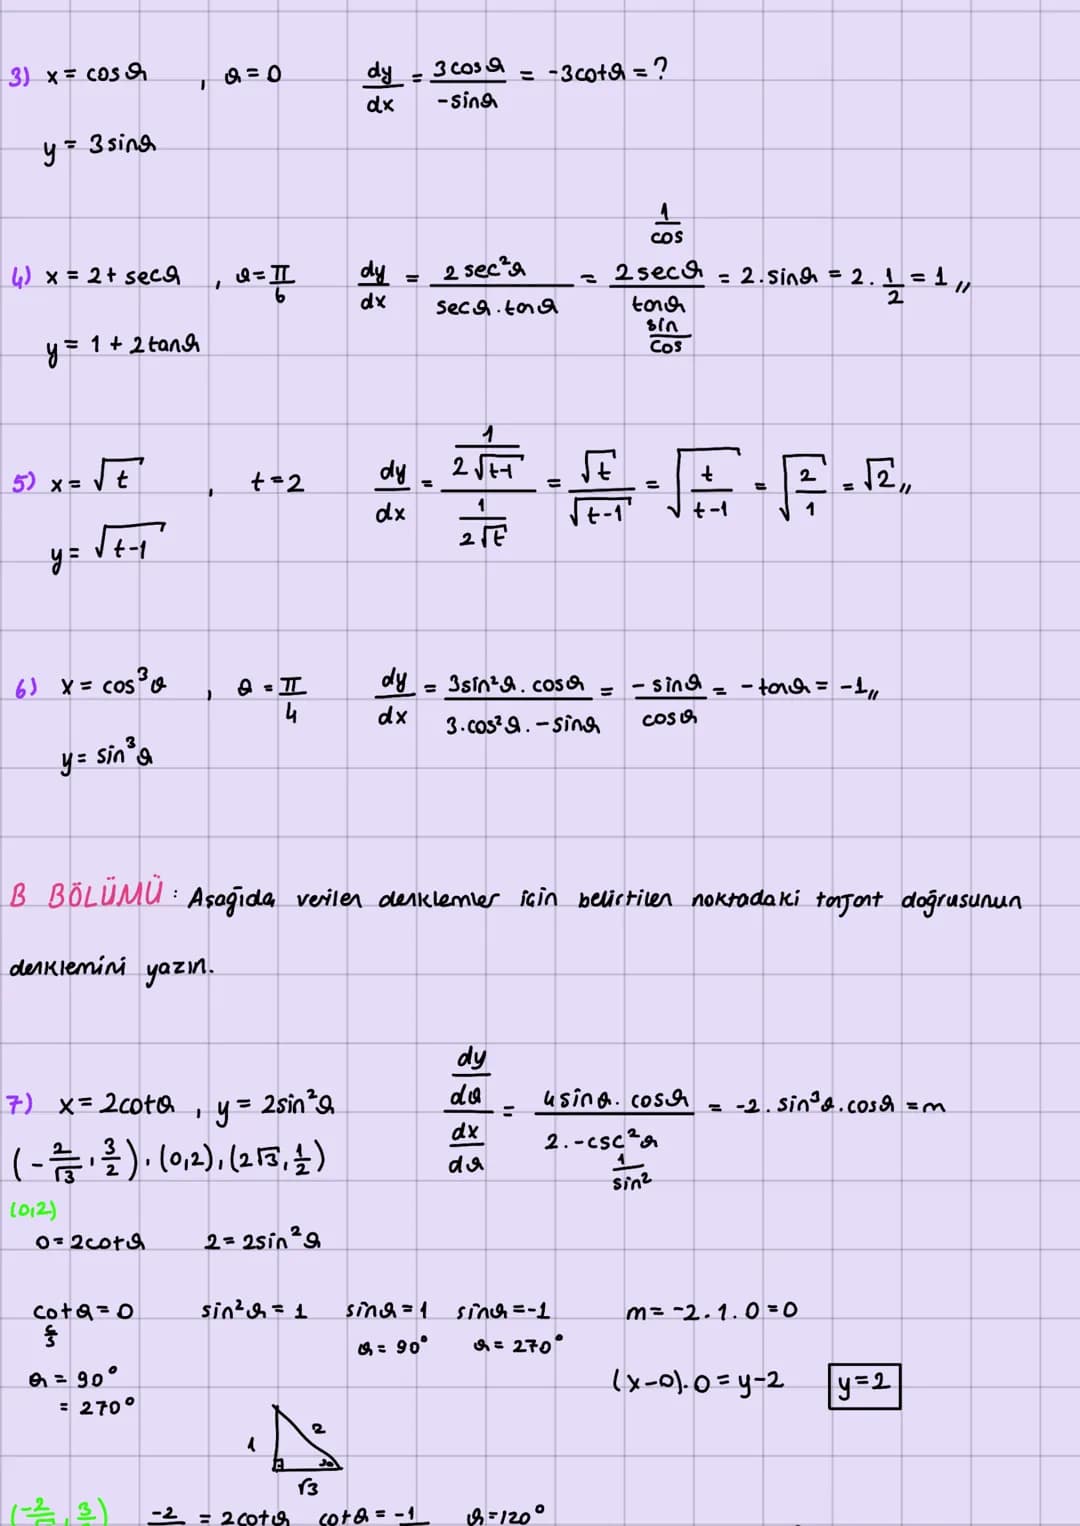 3) x = cosθ , θ = 0 dy/dx = 3cosθ/-sinθ = -3cotθ = ?
y = 3sinθ
4) x = 2+ secθ , θ = π/6 dy/dx = 2sec²θ/secθ.tanθ = 2secθ/tanθ = 2.sinθ = 2.1/2 = 1,,
1/cos
sin/cos
y = 1 + 2tanθ
5) x = √t , t = 2 dy/dx = (1/2√t-1)/(1/2√t) = √t/√t-1 = √(t/t-1) = √(2/1) = √2,,
y = √t-1
6) x = cos³θ , θ = π/4 dy/dx = 3sin²θ.cosθ/3.cos²θ.-sinθ = -sinθ/cosθ = -tanθ = -1,,
y = sin³θ
B BÖLÜMÜ : Aşağıda verilen denklemler için belirtilen noktadaki tanjant doğrusunun
denklemini yazın.
7) x = 2cotθ , y = 2sin²θ (dy/dθ)/(dx/dθ) = 4sinθ.cosθ/2.-csc²θ = -2.sin³θ.cosθ = m
1/sin²
(-2/√3, 3/2), (0,2), (2√3, 1/2)
(0,2)
0 = 2cotθ 2 = 2sin²θ
cotθ = 0 sin²θ = 1 sinθ = 1 sinθ = -1 m = -2.1.0 = 0
c/s θ = 90° θ = 270°
θ = 90° (x-0).0 = y-2 y = 2
= 270°
1 2
√3
-2 = 2cotθ cotθ = -1 θ = 120°